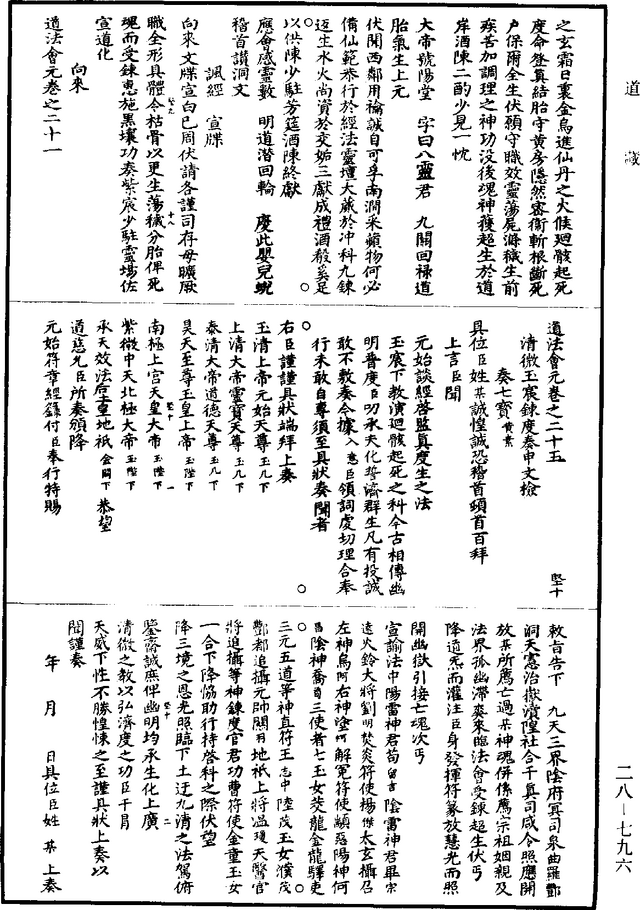 道藏
之玄霜日裏金烏進仙丹之火候廻骸起死
度命登真結胎守黃房隱然密衛斬根斷死
戶保爾全生伏願守職效靈蕩屍滌穢生前
疾苦加調理之神功沒後魂神獲超生於道
岸酒陳二酌少見一忱
大帝號陽堂　字曰八靈君　九關回祿道
胎氣生上元
伏聞西鄰用禴誠自可孚南澗采蘋物何必
備仙範舉行於經法靈壇大蕆於冲科九鍊
迓生水火尚資於交姤三獻成禮酒殽奚足
以供陳少駐芳筵酒陳終獻
應會感靈數　明道潛回輪　慶此嬰兒蛻
稽首讚洞文
諷經　宣牒
向來文牒宣白已周伏請各謹司存毋曠厥
職全形具體令枯骨以更生蕩穢分胎俾死
魂而受鍊惠施黑壤功奏紫宸少駐靈場佐
宣道化
向來
道法會元卷之二十一
道法會元卷之二十五
清微玉宸鍊度奏申文檢
奏七寶黃素
具位臣姓某誠惶誠恐稽首頓首百拜
上言臣聞
元始談經啓監真度生之法
玉宸下教演廻骸起死之科今古相傳幽
明普度臣叨承天化誓濟群生凡有投誠
敢不敷奏今據入意臣領詞虔切理合奉
行未敢自專須至具狀奏聞者
右臣謹謹具狀端拜上奏
玉清上帝元始天尊玉几下
上清大帝靈寶天尊玉几下
泰清大帝道德天尊玉几下
昊天至尊玉皇上帝玉陛下
南極上宮天皇大帝玉陛下
紫微中天北極大帝玉陛下
承天效法后土皇地祇金闕下恭望
道慈允臣所奏頒降
元始符章經籙付臣奉行特賜
敕旨告下　九天三界陰府冥司泉曲羅酆
洞天憲治嶽瀆隍社合干真司咸令照應開
放某所薦亡過某神魂併係薦宗祖姻親及
法界孤幽滯爽來臨法會受鍊超生伏丐
降道炁而灌注臣身發揮符篆放慧光而照
開幽獄引接亡魂次丐
宣諭法中陽雷神君苟留吉陰雷神君畢宗
遠火鈴大將劉明焚炎符使楊傑太玄攝召
左神烏可右神塗可解冤符使顓惡陽神何
昌陰神喬旬三使者七玉女茭龍金龍驛吏
三元五道等神直符王志中陸茂玉女濮茂
酆都追攝元帥關羽地祇上將溫瓊天醫官
將追攝等神鍊度官君功曹符使金童玉女
一合下降協助行持啓科之際伏望
降三境之恩光照臨下土迂九清之法駕俯
鑒齋誠庶俾幽明均承生化上廣
清微之教以弘濟度之功臣干冒
天威下性不勝惶悚之至謹具狀上奏以
聞謹奏
年　月　日具位臣姓　某　上奏
二八—七九六